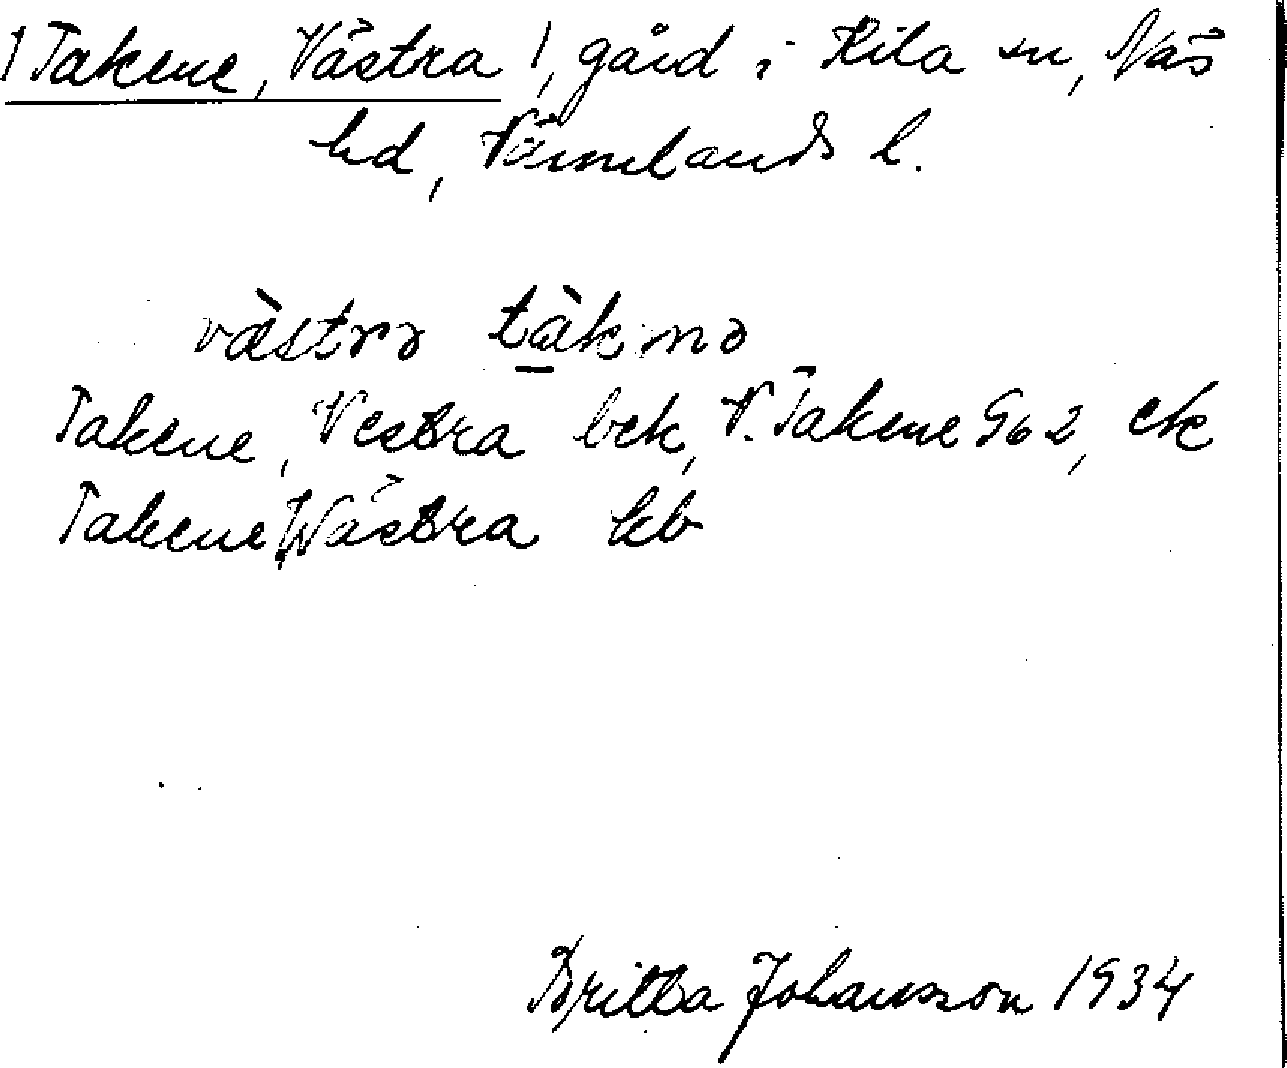 /Takene, Västra/, gård i Kila sn, Näs
hd, Värmlands l.
vä̀strə tä̀k nə
Takene, Vestra bek, V. Takene G62, ek
Takene, Wästra kb
Britta Johansson 1934